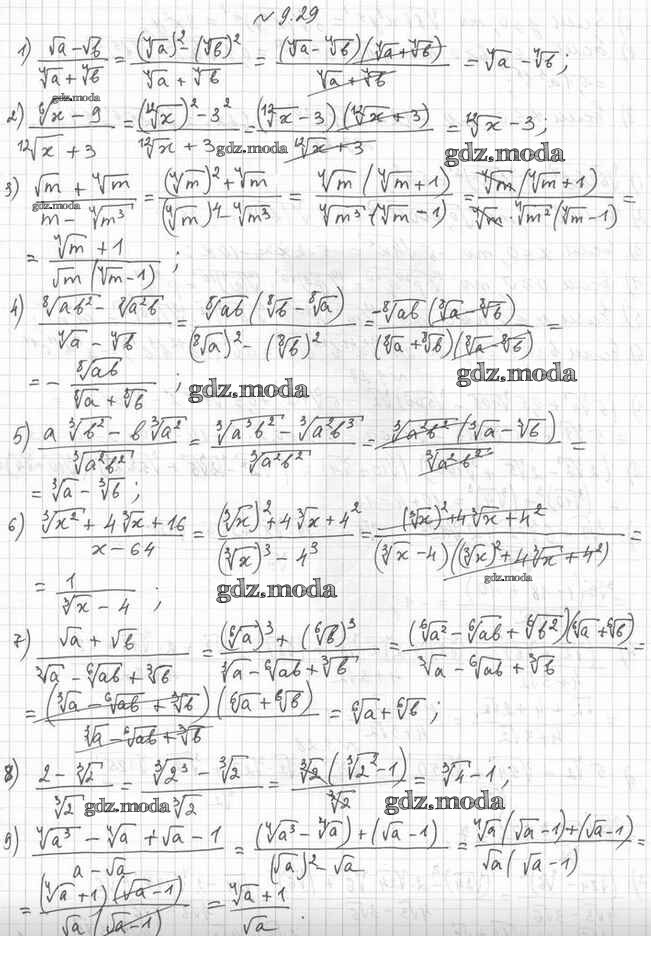 № 9.29
1) (√a − √b)/(⁴√a + ⁴√b) = ((⁴√a)² − (⁴√b)²)/(⁴√a + ⁴√b) = ((⁴√a − ⁴√b)(⁴√a + ⁴√b))/(⁴√a + ⁴√b) = ⁴√a − ⁴√b ;
gdz.moda
2) (⁶√x − 9)/(¹²√x + 3) = ((¹²√x)² − 3²)/(¹²√x + 3) = ((¹²√x − 3)(¹²√x + 3))/(¹²√x + 3) = ¹²√x − 3 ;
gdz.moda gdz.moda
3) (√m + ⁴√m)/(m − ⁴√m³) = ((⁴√m)² + ⁴√m)/((⁴√m)⁴ − ⁴√m³) = (⁴√m (⁴√m + 1))/(⁴√m³ · (⁴√m − 1)) = (⁴√m (⁴√m + 1))/(⁴√m · ⁴√m² (⁴√m − 1)) =
gdz.moda
= (⁴√m + 1)/(√m (⁴√m − 1)) ;
4) (⁸√ab² − ⁸√a²b)/(⁴√a − ⁴√b) = (⁸√ab (⁸√b − ⁸√a))/((⁸√a)² − (⁸√b)²) = (−⁸√ab (⁸√a − ⁸√b))/((⁸√a + ⁸√b)(⁸√a − ⁸√b)) =
gdz.moda
= − ⁸√ab/(⁸√a + ⁸√b) ;
gdz.moda
5) (a ³√b² − b ³√a²)/³√a²b² = (³√a³b² − ³√a²b³)/³√a²b² = (³√a²b² (³√a − ³√b))/³√a²b² =
= ³√a − ³√b ;
6) (³√x² + 4 ³√x + 16)/(x − 64) = ((³√x)² + 4 ³√x + 4²)/((³√x)³ − 4³) = ((³√x)² + 4 ³√x + 4²)/((³√x − 4)((³√x)² + 4 ³√x + 4²)) =
gdz.moda
= 1/(³√x − 4) ;
gdz.moda
7) (√a + √b)/(³√a − ⁶√ab + ³√b) = ((⁶√a)³ + (⁶√b)³)/(³√a − ⁶√ab + ³√b) = ((⁶√a² − ⁶√ab + ⁶√b²)(⁶√a + ⁶√b))/(³√a − ⁶√ab + ³√b) =
= ((³√a − ⁶√ab + ³√b)(⁶√a + ⁶√b))/(³√a − ⁶√ab + ³√b) = ⁶√a + ⁶√b ;
8) (2 − ³√2)/³√2 = (³√2³ − ³√2)/³√2 = (³√2 (³√2² − 1))/³√2 = ³√4 − 1 ;
gdz.moda gdz.moda
9) (⁴√a³ − ⁴√a + √a − 1)/(a − √a) = ((⁴√a³ − ⁴√a) + (√a − 1))/((√a)² − √a) = (⁴√a (√a − 1) + (√a − 1))/(√a (√a − 1)) =
= ((⁴√a + 1)(√a − 1))/(√a (√a − 1)) = (⁴√a + 1)/√a .